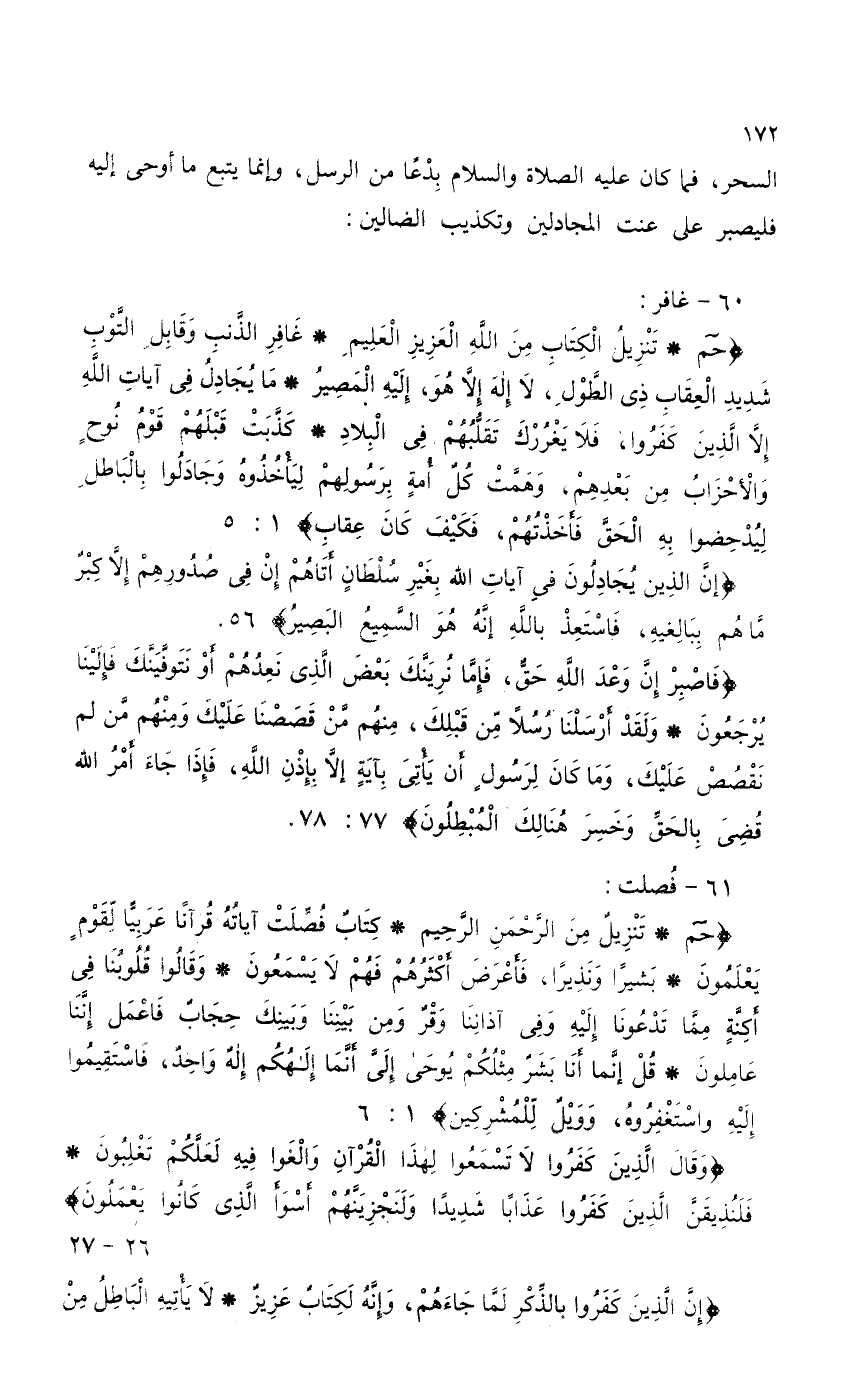 ١٧٢
السحر، فما كان عليه الصلاة والسلام بِدْعًا من الرسل، وإنما يتبع ما أوحى إليه
فليصبر على عنت المجادلين وتكذيب الضالين :
٦٠ – غافر :
﴿حَمَ * تَنْزِيلُ الْكِتَابِ مِنَ اللَّهِ الْعَزِيزِ الْعَلِيمِ * غَافِرِ الذَّنبِ وَقَابِلِ التَّوْبِ
شَدِيدِ الْعِقَابِ ذِى الطَّوْلِ، لَا إِلٰهَ إِلَّا هُوَ، إِلَيْهِ الْمَصِيرُ * مَا يُجَادِلُ فِى آيَاتِ اللَّهِ
إِلَّا الَّذِينَ كَفَرُوا، فَلَا يَغْرُرْكَ تَقَلُّبُهُمْ فِى الْبِلَادِ * كَذَّبَتْ قَبْلَهُمْ قَوْمُ نُوحٍ
وَالْأَحْزَابُ مِن بَعْدِهِمْ، وَهَمَّتْ كُلُّ أُمةٍ بِرَسُولِهِمْ لِيَأْخُذُوهُ وَجَادَلُوا بِالْبَاطلِ
لِيُدْحِضوا بِهِ الْحَقَّ فَأَخَذْتُهُمْ، فَكَيْفَ كَانَ عِقابِ﴾ ١ : ٥
﴿إنَّ الذين يُجَادِلُونَ فى آيَاتِ الله بِغَيْرِ سُلْطَانٍ أَتَاهُمْ إِنْ فِى صُدُورِهِمْ إِلَّا كِبْرٌ
مَّا هُم بِبَالِغيهِ، فَاسْتَعِذْ باللَّهِ إِنَّهُ هُوَ السَّمِيعُ البَصِيرُ﴾ ٥٦.
﴿فَاصْبِرْ إِنَّ وَعْدَ اللَّهِ حَقٌّ، فَإِمَّا نُرِيَنَّكَ بَعْضَ الَّذِى نَعِدُهُمْ أَوْ نَتَوفَّيَنَّكَ فَإِلَيْنَا
يُرْجَعُونَ * وَلَقَدْ أَرْسَلْنَا رُسُلًا مِّن قَبْلِكَ، مِنهُم مَّنْ قَصَصْنَا عَلَيْكَ وَمِنْهُم مَّن لم
نَقْصُصْ عَلَيْكَ، وَمَا كَانَ لِرَسُولٍ أَن يَأْتِىَ بِآيَةٍ إلَّا بِإِذْنِ اللَّهِ، فَإِذَا جَاءَ أَمْرُ الله
قُضِىَ بِالحَقِّ وَخَسِرَ هُنَالِكَ الْمُبْطِلُونَ﴾ ٧٧ : ٧٨.
٦١ – فُصلت :
﴿حَمَ * تَنْزِيلٌ مِنَ الرَّحْمَنِ الرَّحِيم * كِتَابٌ فُصِّلَتْ آياتُهُ قُرآنًا عَرَبِيًّا لِّقَوْمٍ
يَعْلَمُونَ * بَشيرًا وَنَذِيرًا، فَأَعْرَضَ أَكْثَرُهُمْ فَهُمْ لَا يَسْمَعُونَ * وَقَالُوا قُلُوبُنَا فِى
أَكِنَّةٍ مِمَّا تَدْعُونَا إِلَيْهِ وَفِى آذانِنَا وَقْرٌ وَمِن بَيْنِنَا وَبَينِكَ حِجَابٌ فَاعْمَل إِنَّنَا
عَامِلونَ * قُلْ إِنَّما أَنَا بَشَرٌ مِثْلُكُمْ يُوحَىٰ إِلَىَّ أَنَّمَا إِلَـٰهُكُم إِلٰهٌ وَاحِدٌ، فَاسْتَقِيمُوا
إِلَيْهِ واسْتَغْفِرُوهُ، وَوَيْلٌ لِّلْمُشْرِكِين﴾ ١ : ٦
﴿وَقَالَ الَّذِينَ كَفَرُوا لَا تَسْمَعُوا لِهٰذَا الْقُرْآنِ وَالْغَوا فِيهِ لَعَلَّكُمْ تَغْلِبُونَ *
فَلَنُذِيقَنَّ الَّذِينَ كَفَرُوا عَذَابًا شَدِيدًا وَلَنَجْزِيَنَّهُمْ أَسْوَأَ الَّذِى كَانُوا يَعْمَلُونَ﴾
٢٦ – ٢٧
﴿إِنَّ الَّذِينَ كَفَرُوا بالذِّكْرِ لَمَّا جَاءَهُمْ، وَإِنَّهُ لَكِتَابٌ عَزِيزٌ * لَا يَأْتِيهِ الْبَاطِلُ مِنْ